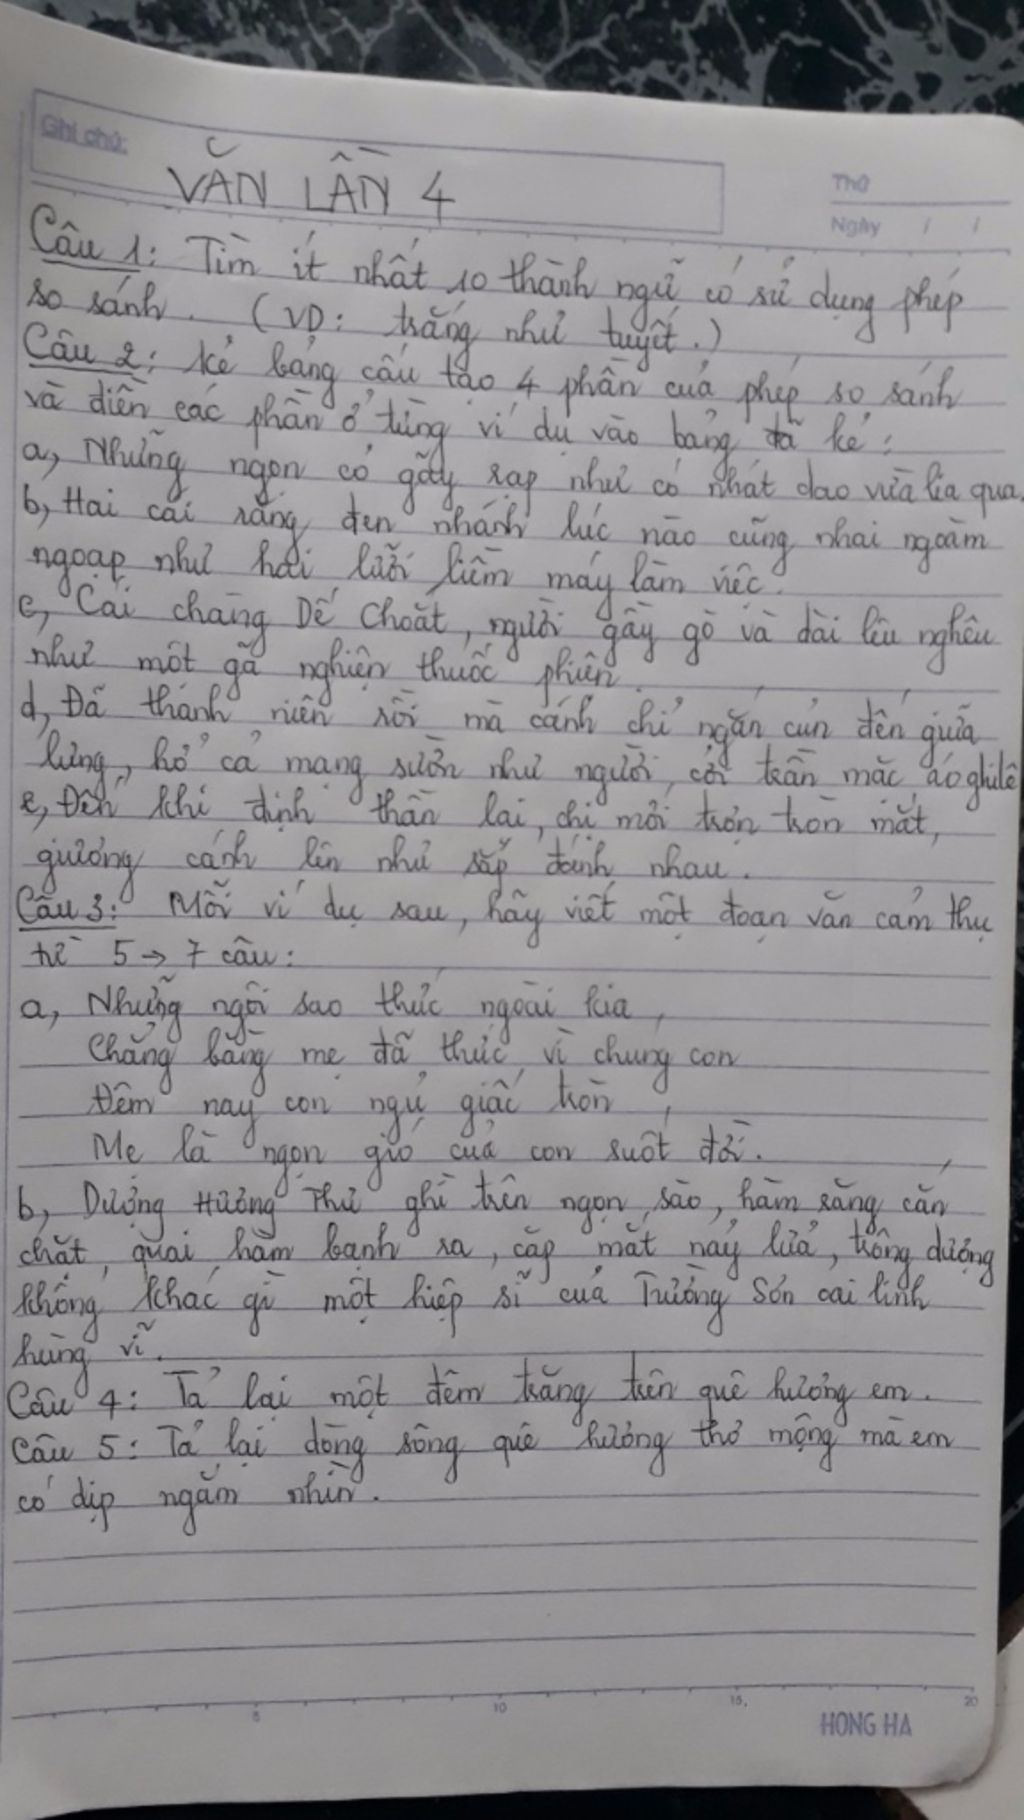 Ghi chú:
Thứ
Ngày / /
VĂN LẦN 4
Câu 1: Tìm ít nhất 10 thành ngữ có sử dụng phép
so sánh. (VD: trắng như tuyết.)
Câu 2: kẻ bảng cấu tạo 4 phần của phép so sánh
và điền các phần ở từng ví dụ vào bảng đã kẻ:
a, Những ngọn cỏ gãy rạp như có nhát dao vừa lia qua.
b, Hai cái răng đen nhánh lúc nào cũng nhai ngoàm
ngoạp như hai lưỡi liềm máy làm việc.
c, Cái chàng Dế Choắt, người gầy gò và dài lêu nghêu
như một gã nghiện thuốc phiện.
d, Đã thanh niên rồi mà cánh chỉ ngắn củn đến giữa
lưng, hở cả mạng sườn như người cởi trần mặc áo ghilê
e, Đến khi định thần lại, chị mới trợn tròn mắt,
giương cánh lên như sắp đánh nhau.
Câu 3: Mỗi ví dụ sau, hãy viết một đoạn văn cảm thụ
từ 5 → 7 câu:
a, Những ngôi sao thức ngoài kia,
Chẳng bằng mẹ đã thức vì chúng con
Đêm nay con ngủ giấc tròn,
Mẹ là ngọn gió của con suốt đời.
b, Dượng Hương Thư ghì trên ngọn sào, hàm răng cắn
chặt, quai hàm bạnh ra, cặp mắt nảy lửa, trông dượng
không khác gì một hiệp sĩ của Trường Sơn oai linh
hùng vĩ.
Câu 4: Tả lại một đêm trăng trên quê hương em.
Câu 5: Tả lại dòng sông quê hương thơ mộng mà em
có dịp ngắm nhìn.
5 10 15 20
HONG HA